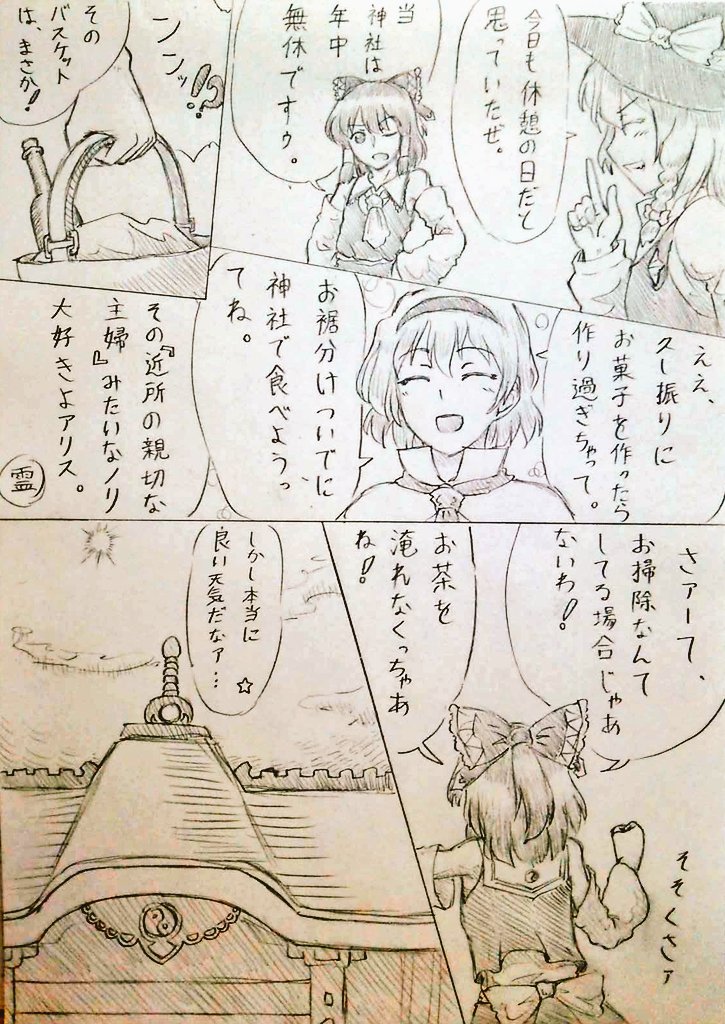 今日も休憩の日だと
思っていたぜ。
当
神社は
年中
無休ですゥ。
ンンッ!!?
その
バスケット
は、まさか!
ええ、
久し振りに
お菓子を作ったら
作り過ぎちゃって。
お裾分けついでに
神社で食べようっ
てね。
その『近所の親切な
主婦』みたいなノリ
大好きよアリス。
霊
さァーて、
お掃除なんて
してる場合じゃあ
ないわ!
お茶を
淹れなくっちゃあ
ね!
そそくさァ
しかし本当に
良い天気だなァ…
☆